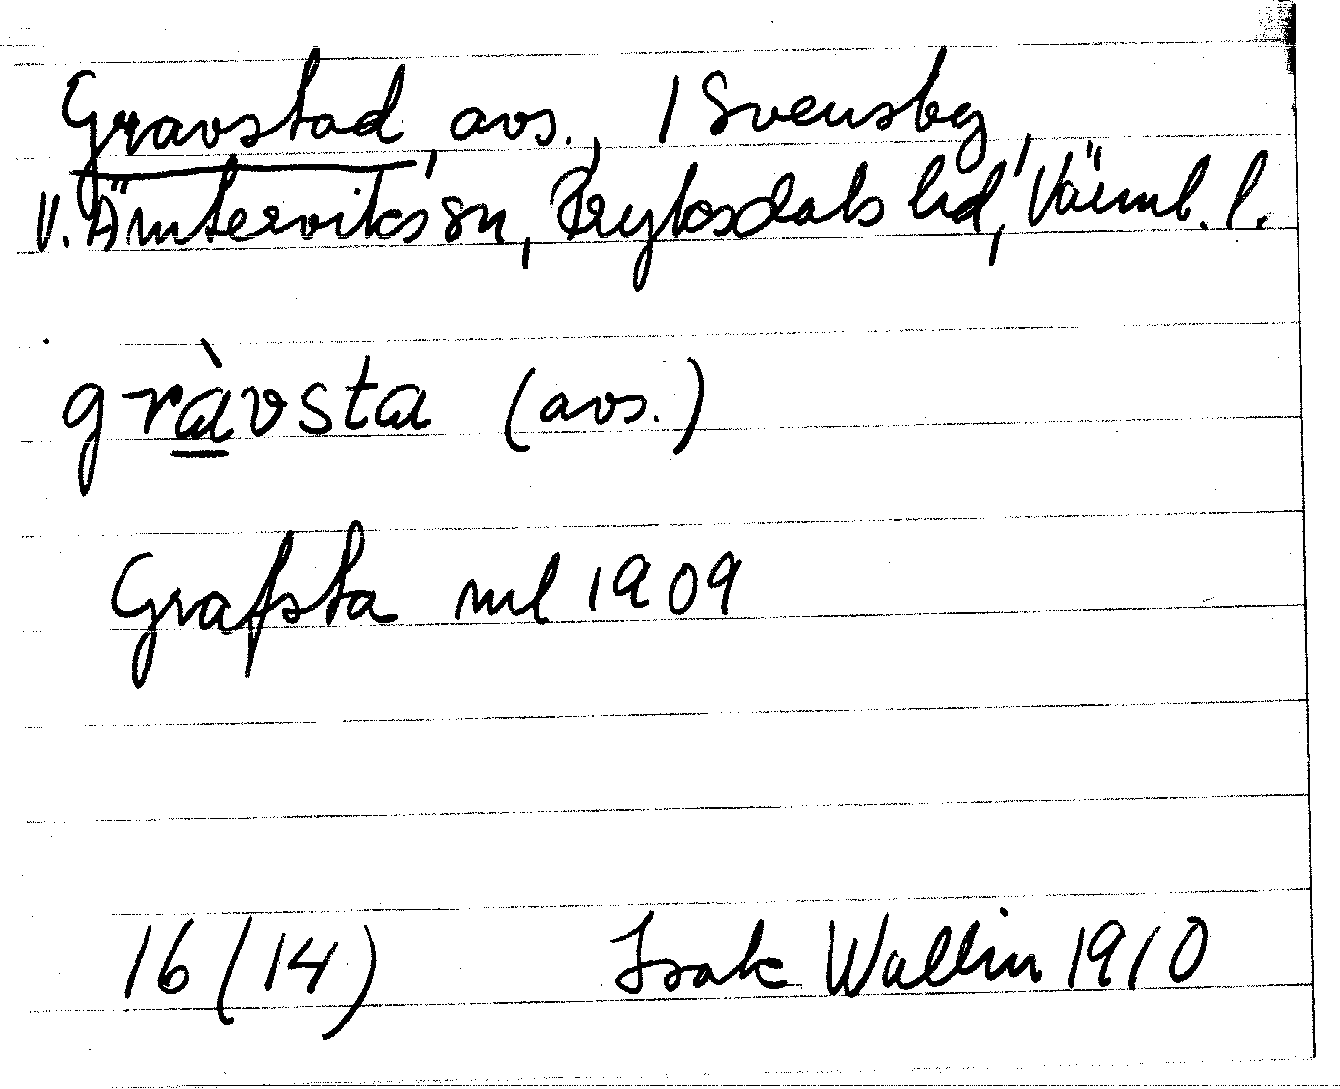 Gravstad, avs., / Svensby,
V. Ämterviks sn, Fryksdals hd, Värml. l.
gràvsta (avs.)
Grafsta ml 1909
16 (14) Isak Wallin 1910